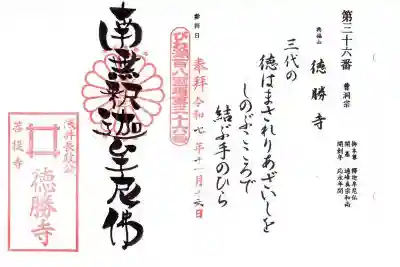 第三十六番
曹洞宗
医王山
徳勝寺
御本尊 釋迦牟尼仏
開創年 応永年間
三代の
徳はまされりあざいしを
しのぶこころで
結ぶ手のひら
参拝日
奉拝
令和七年十一月十六日
びわ湖百八霊場第三十六番
南無釋迦牟尼佛
浅井長政公
菩提寺
徳勝寺